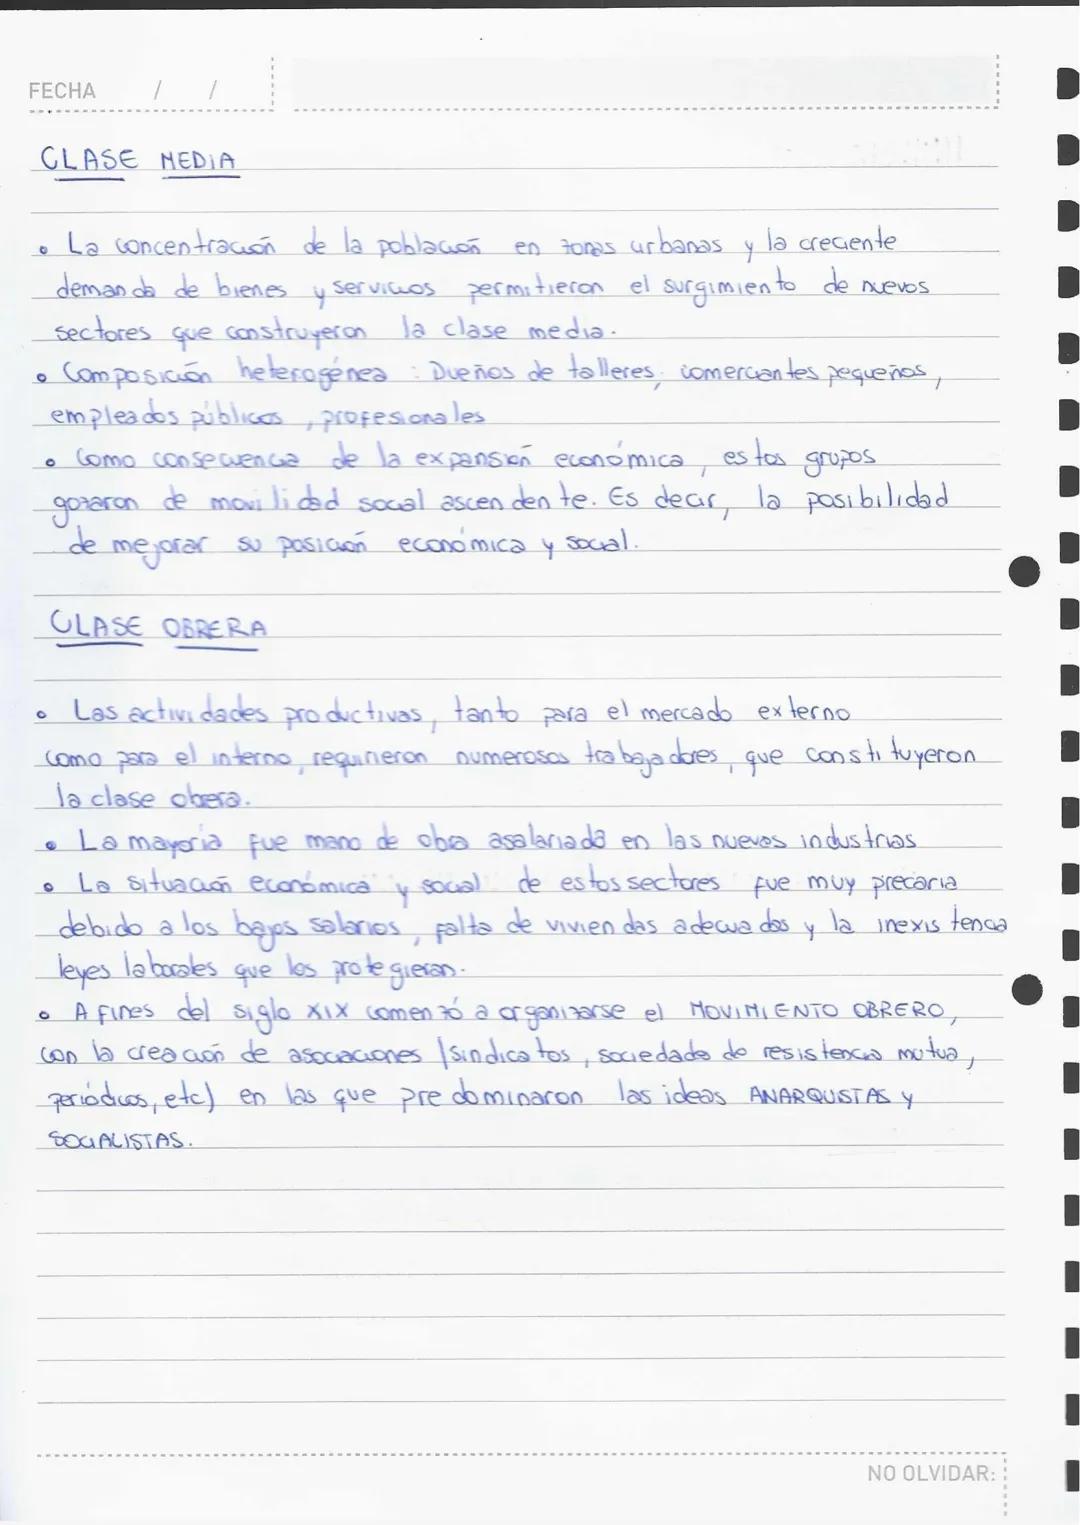 FECHA / /
CLASE MEDIA
• La concentración de la población en zonas urbanas y la creciente
demanda de bienes y servicios permitieron el surgimiento de nuevos
sectores que construyeron la clase media.
• Composición heterogénea : Dueños de talleres, comerciantes pequeños,
empleados públicos, profesionales
• Como consecuencia de la expansión económica, estos grupos
gozaron de movilidad social ascendente. Es decir, la posibilidad
de mejorar su posición económica y social.
CLASE OBRERA
• Las actividades productivas, tanto para el mercado externo
como para el interno, requirieron numerosos trabajadores, que constituyeron
la clase obera.
• La mayoria fue mano de obra asalariada en las nuevas industrias
• La situación económica y social de estos sectores fue muy precaria
debido a los bajos salarios, falta de viviendas adecuadas y la inexistencia
leyes laborales que los protegieran.
• A fines del siglo XIX comenzó a organizarse el MOVIMIENTO OBRERO,
con la creación de asociaciones (sindicatos, sociedade de resistencia mutua,
periódicos, etc) en las que predominaron las ideas ANARQUSTAS y
SOCIALISTAS.
NO OLVIDAR: